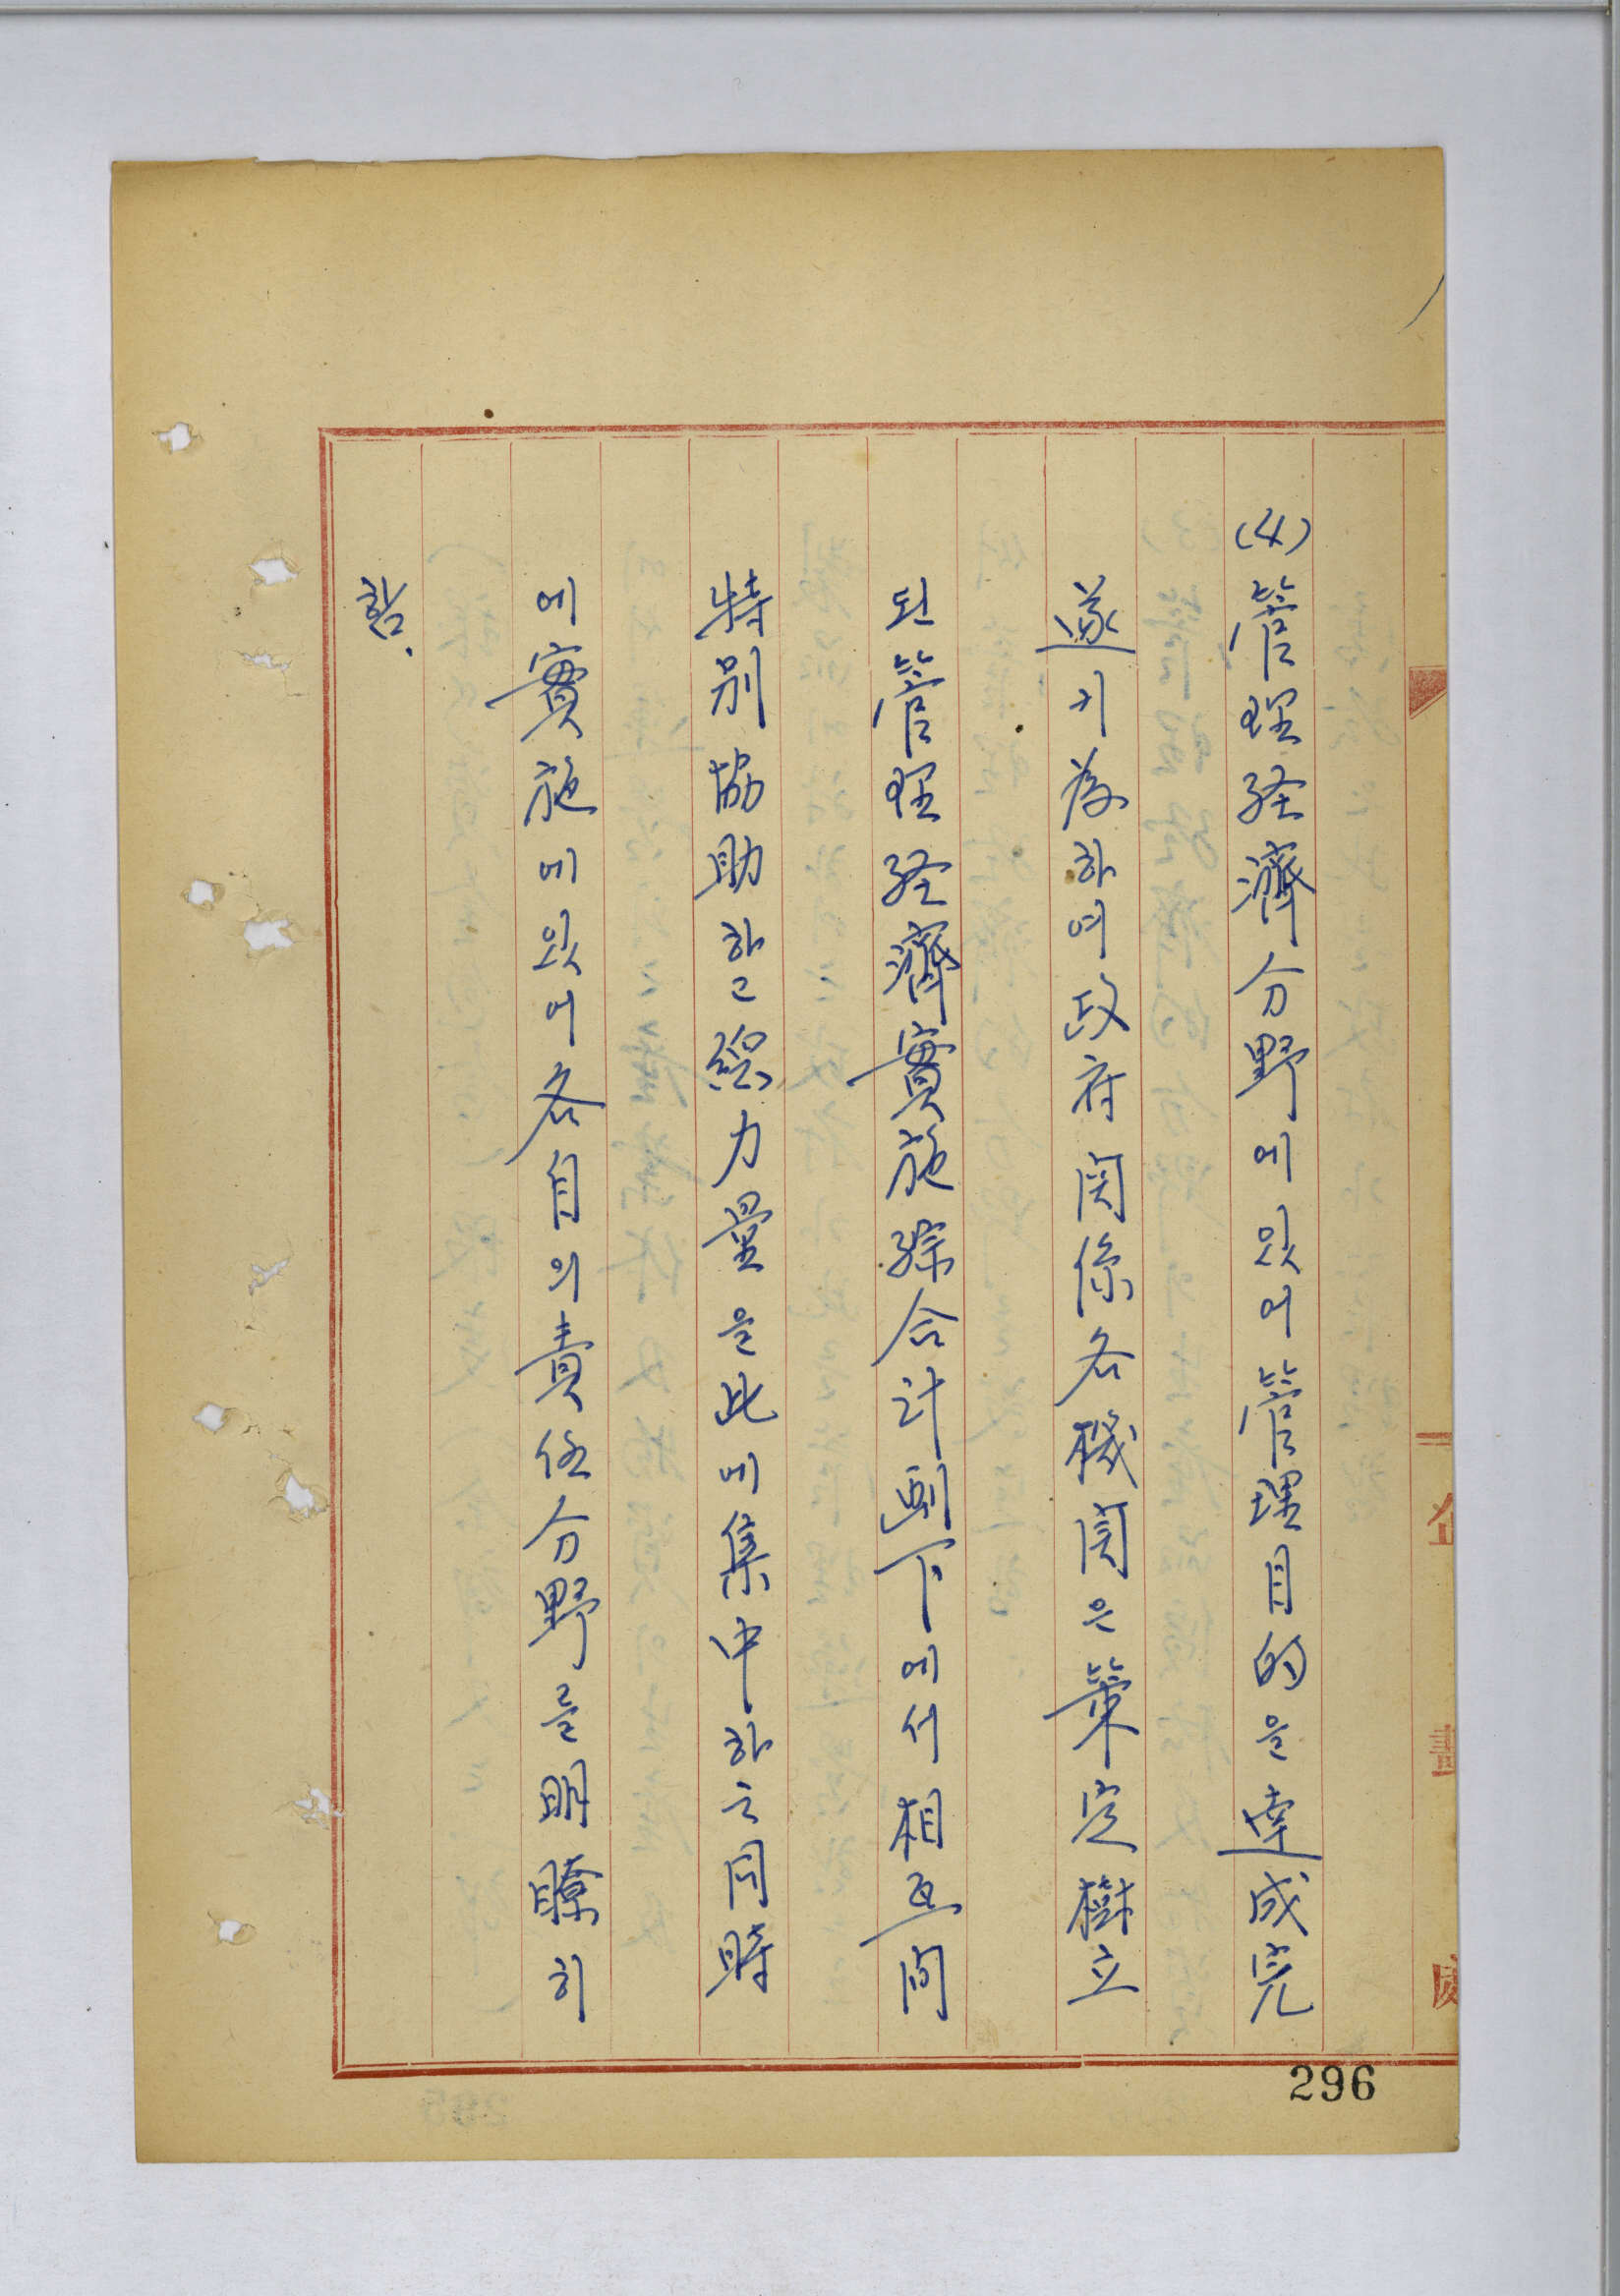 (4) 管理経濟分野에 있어 管理目的을 達成完
遂키 爲하여 政府関係各機関은 策定樹立
된 管理経濟實施綜合計劃下에서 相互間
特別協助하고 総力量을 此에 集中하는 同時
에 實施에 있어 各自의 責任分野를 明瞭히
企畫
296